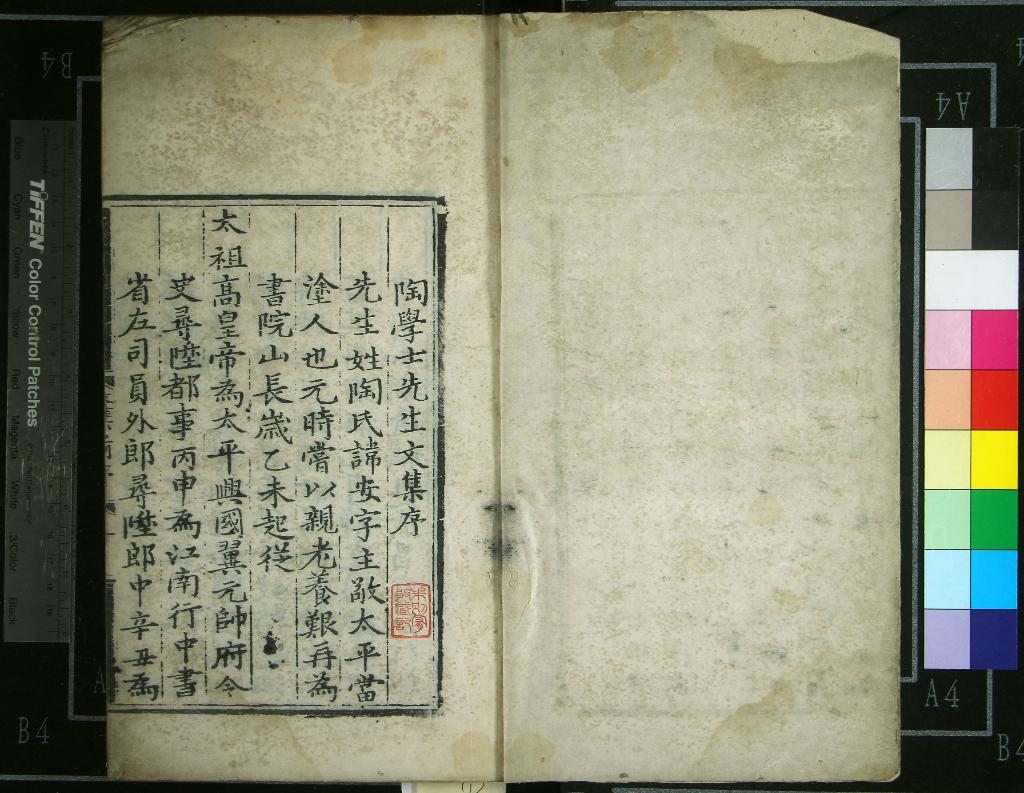 陶學士先生文集序
先生姓陶氏諱安字主敬太平當
塗人也元時嘗以親老養艱再為
書院山長歲乙未起從
太祖高皇帝為太平興國翼元帥府令
史尋陞都事丙申為江南行中書
省左司員外郎尋陞郎中辛丑為
TIFFEN Color Control Patches
Blue
Cyan
Green
Yellow
Red
Magenta
White
3/Color
Black
B4
A4
B4
A4
A4
B4